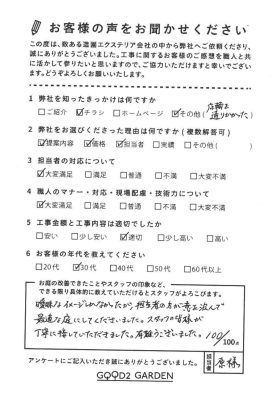 お客様の声をお聞かせください
この度は、数ある造園エクステリア会社の中から弊社へご依頼くださり、
誠にありがとうございました。工事に関するお客様のご感想を職人と共
に活かして参りたいと思いますので、ご協力いただけますと幸いでござい
ます。どうぞよろしくお願いいたします。
1 弊社を知ったきっかけは何ですか
□ご紹介 ☑チラシ □ホームページ ☑その他( 店舗を通りかかった )
2 弊社をお選びくださった理由は何ですか(複数解答可)
☑提案内容 ☑価格 ☑担当者 □実績 □その他( )
3 担当者の対応について
☑大変満足 □満足 □普通 □不満 □大変不満
4 職人のマナー・対応・現場配慮・技術力について
☑大変満足 □満足 □普通 □不満 □大変不満
5 工事金額と工事内容は適切でしたか
□安い □少し安い ☑適切 □少し高い □高い
6 お客様の年代を教えてください
□20代 ☑30代 □40代 □50代 □60代以上
お庭の改善できたことやスタッフの印象など、
できる限り具体的に教えていただけるとスタッフがよろこびます。
曖昧なイメージしかなかったが、担当者の方が意を汲んで
最適な庭にしてくださいました。スタッフの皆様が
丁寧に接していただきました。有難うございました。
100/100点
アンケートにご記入いただき誠にありがとうございました。
担当者 原様
GOOD2 GARDEN